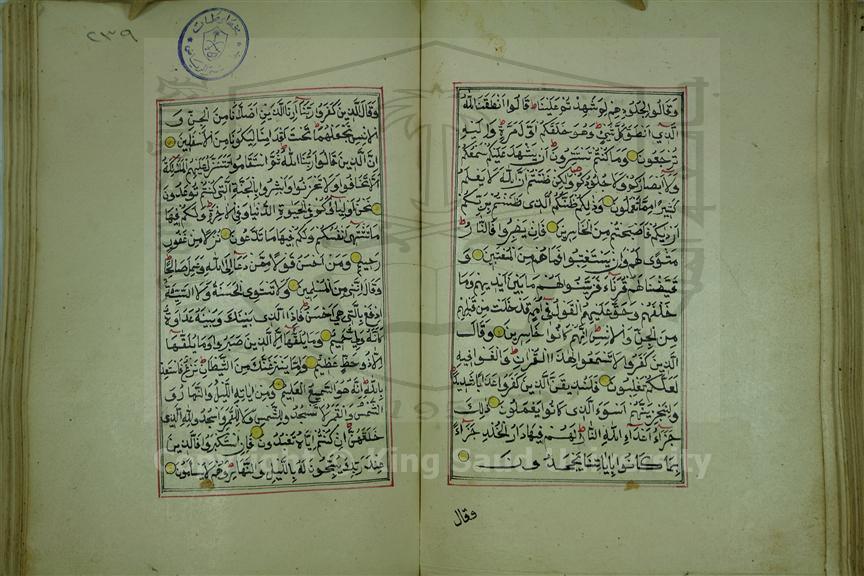 وقالوا لجلودهم لم شهدتم علينا قالوا انطقنا الله
الذي انطق كل شيء وهو خلقكم اول مرة واليه
ترجعون وما كنتم تستترون ان يشهد عليكم سمعكم
ولا ابصاركم ولا جلودكم ولكن ظننتم ان الله لا يعلم
كثيرا مما تعملون وذلكم ظنكم الذي ظننتم بربكم
ارديكم فاصبحتم من الخاسرين فان يصبروا فالنار
مثوى لهم وان يستعتبوا فما هم من المعتبين و
قيضنا لهم قرناء فزينوا لهم ما بين ايديهم وما
خلفهم وحق عليهم القول في امم قد خلت من قبلهم
من الجن والانس انهم كانوا خاسرين وقال
الذين كفروا لا تسمعوا لهذا القران والغوا فيه
لعلكم تغلبون فلنذيقن الذين كفروا عذابا شديدا
ولنجزينهم اسوء الذي كانوا يعملون ذلك
جزاء اعداء الله النار لهم فيها دار الخلد جزاء
بما كانوا باياتنا يجحدون
وقال
٢٣٩
وقال الذين كفروا ربنا ارنا الذين اضلانا من الجن و
الانس نجعلهما تحت اقدامنا ليكونا من الاسفلين
ان الذين قالوا ربنا الله ثم استقاموا تتنزل عليهم الملئكة
الا تخافوا ولا تحزنوا وابشروا بالجنة التي كنتم توعدون
نحن اولياؤكم في الحيوة الدنيا وفي الاخرة ولكم فيها
ما تشتهي انفسكم ولكم فيها ما تدعون نزلا من غفور
رحيم ومن احسن قولا ممن دعا الى الله وعمل صالحا
وقال انني من المسلمين ولا تستوي الحسنة ولا السيئة
ادفع بالتي هي احسن فاذا الذي بينك وبينه عداوة
كانه ولي حميم وما يلقيها الا الذين صبروا وما يلقيها
الا ذو حظ عظيم واما ينزغنك من الشيطان نزغ فاستعذ
بالله انه هو السميع العليم ومن اياته الليل والنهار و
الشمس والقمر لا تسجدوا للشمس ولا للقمر واسجدوا لله الذي
خلقهن ان كنتم اياه تعبدون فان استكبروا فالذين
عند ربك يسبحون له بالليل والنهار وهم لا يسامون
Copyright © King Saud University